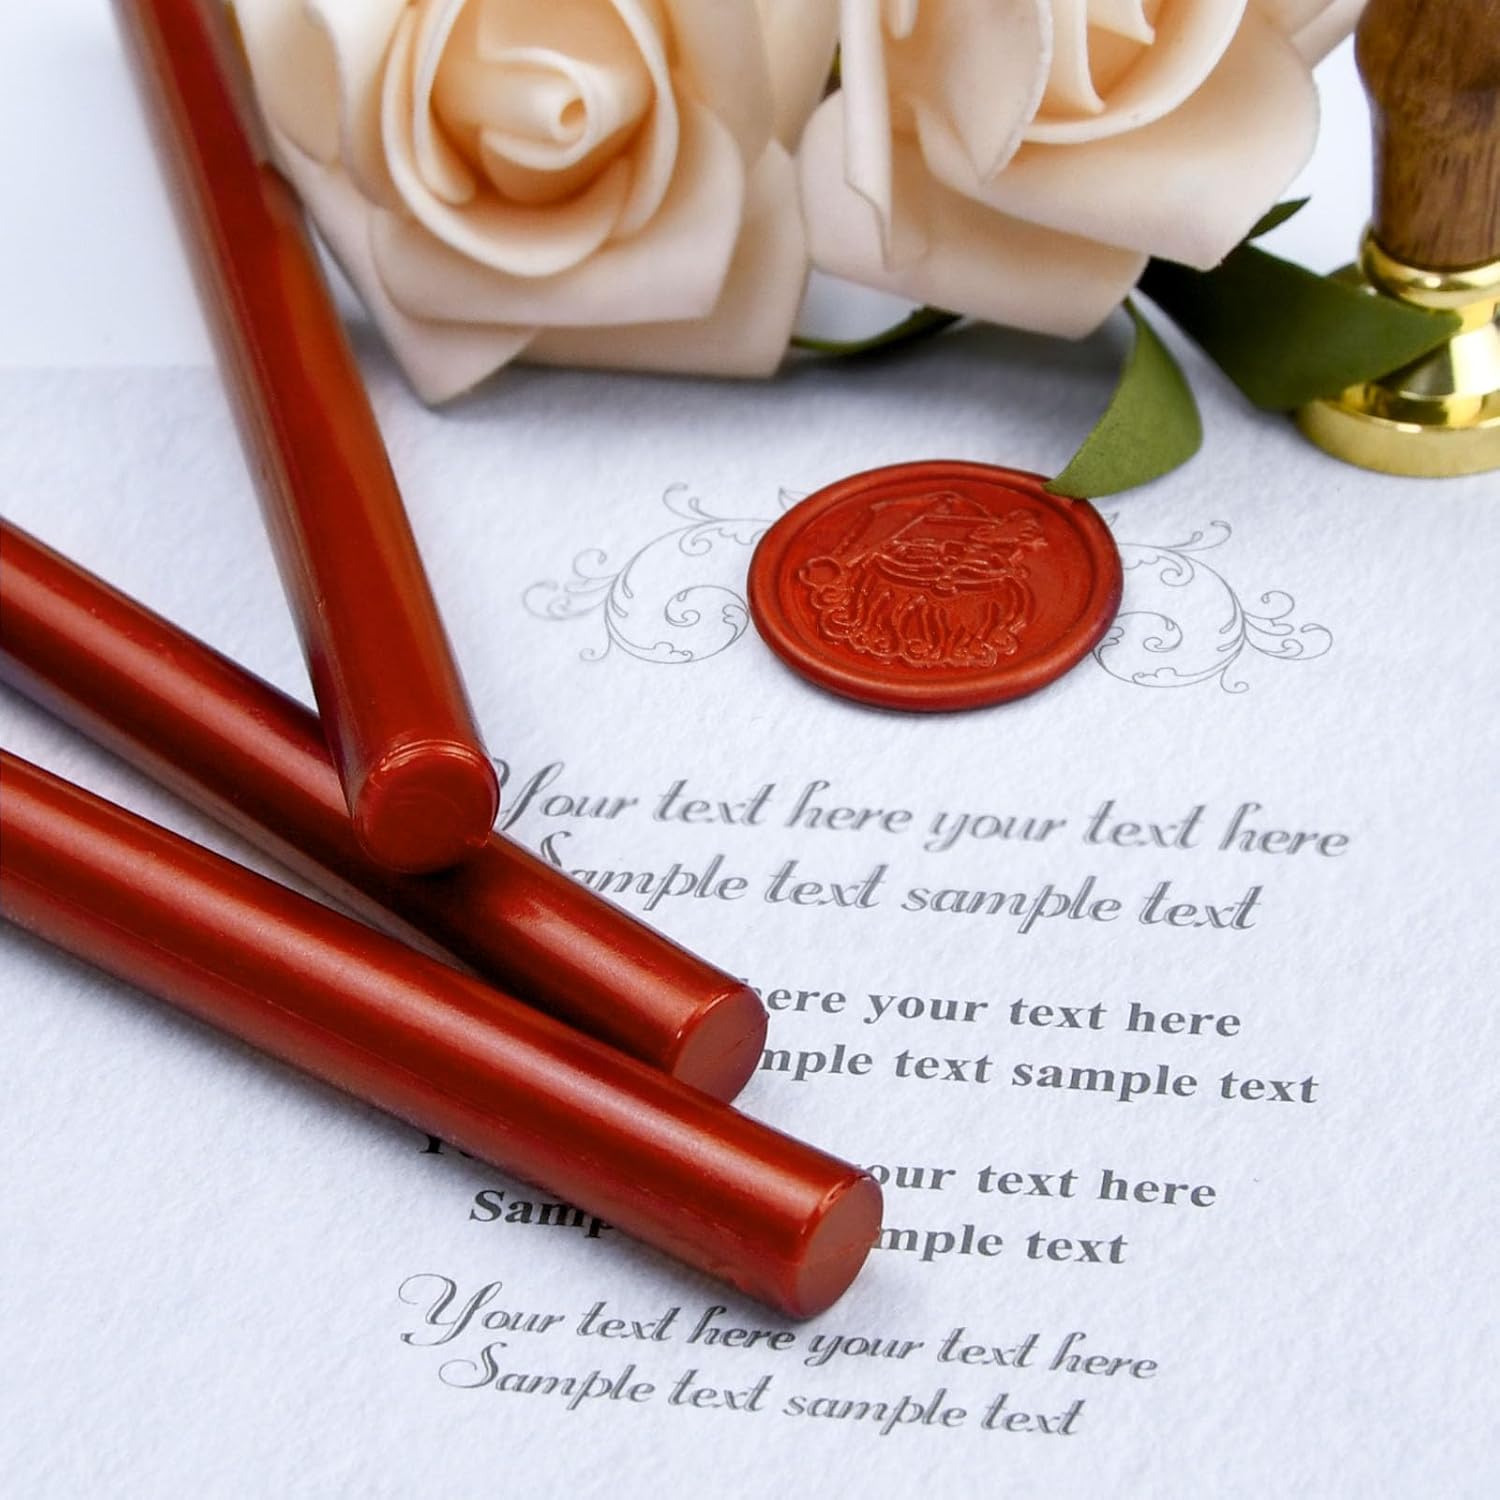 Your text here your text here
Sample text sample text
here your text here
text sample text
your text here
text
Your text here your text here
Sample text sample text